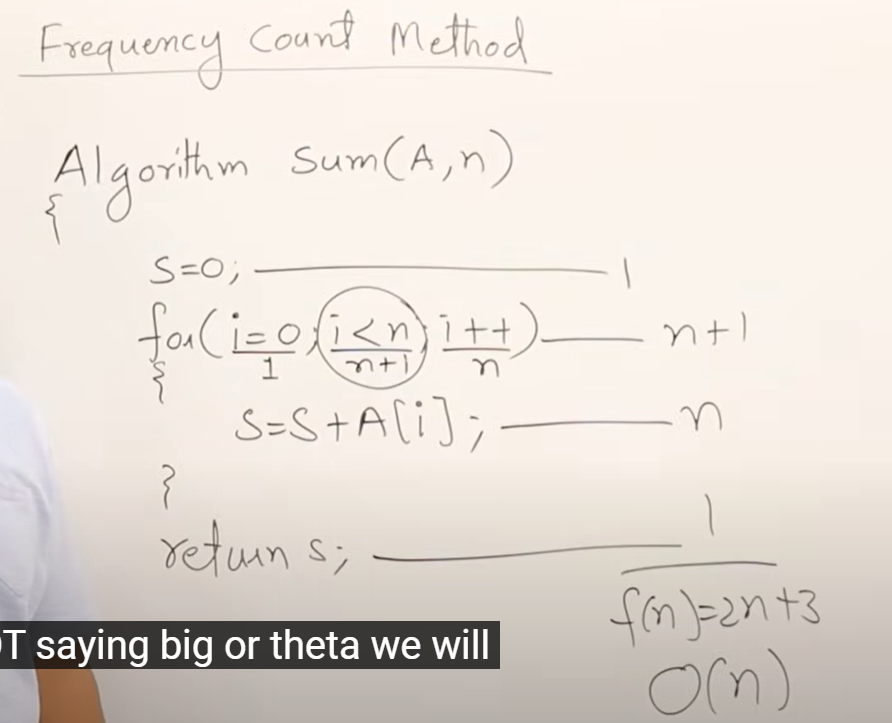 Frequency Count Method
Algorithm Sum(A,n)
{
S=0; 1
for(i=0;i<n;i++) n+1
1 n+1 n
{
S=S+A[i]; n
}
return s; 1
f(n)=2n+3
O(n)
OT saying big or theta we will